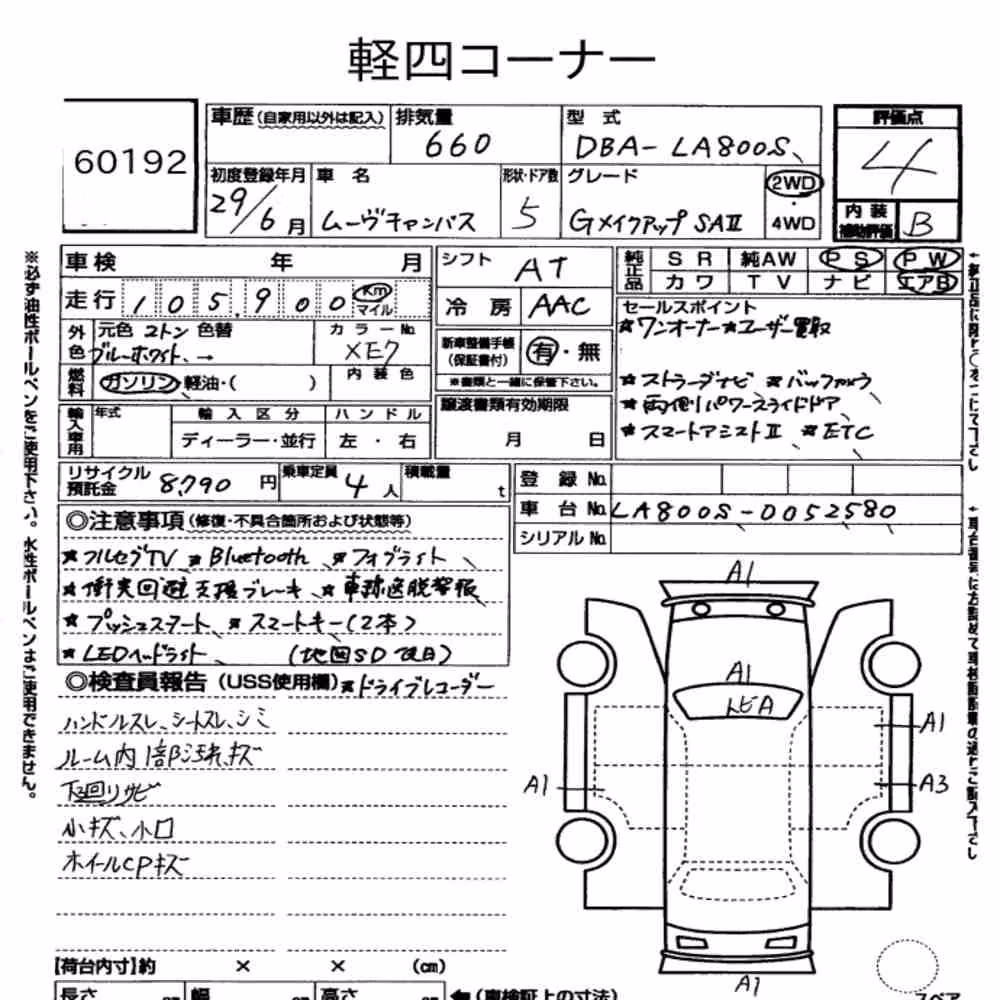 軽四コーナー
60192
車歴 (自家用以外は記入) 排気量 660
型式 DBA-LA800S
評価点 4
初度登録年月 29/6月
車名 ムーヴキャンバス
形状・ドア数 5
グレード GメイクアップSAⅡ
2WD ・ 4WD
内装補助評価 B
車検 年 月
シフト AT
純正品 SR 純AW PS PW
カワ TV ナビ エアB
走行 105,900 Km マイル
冷房 AAC
セールスポイント
★ワンオーナー★ユーザー買取
外色 元色 2トン 色替
ブルーホワイト →
カラーNo. XE7
新車整備手帳(保証書付) 有・無
※書類と一緒に保管下さい。
★ストラーダナビ ★バックカメラ
★両側パワースライドドア
★スマートアシストⅡ ★ETC
燃料 ガソリン・軽油・( )
内装色
譲渡書類有効期限
月 日
輸入車用 年式 輸入区分 ハンドル
ディーラー・並行 左・右
リサイクル預託金 8,790円
乗車定員 4人
積載量 t
登録No.
車台No. LA800S-0052580
シリアルNo.
◎注意事項 (修復・不具合箇所および状態等)
★フルセグTV ★Bluetooth ★フォグライト
★衝突回避支援ブレーキ ★車線逸脱警報
★プッシュスタート ★スマートキー(2本)
★LEDヘッドライト (地図SD有)
◎検査員報告 (USS使用欄) ★ドライブレコーダー
ハンドルスレ、シートスレ、シミ
ルーム内1部汚れ、キズ
下廻りサビ
小キズ、小凹
ホイールCPキズ
A1
A1
トビA
A1
A1
A3
A1
【荷台内寸】約 × × (cm)
長さ cm 幅 cm 高さ cm
(車検証上の寸法)
スペア
※必ず油性ボールペンをご使用下さい。水性ボールペンはご使用できません。